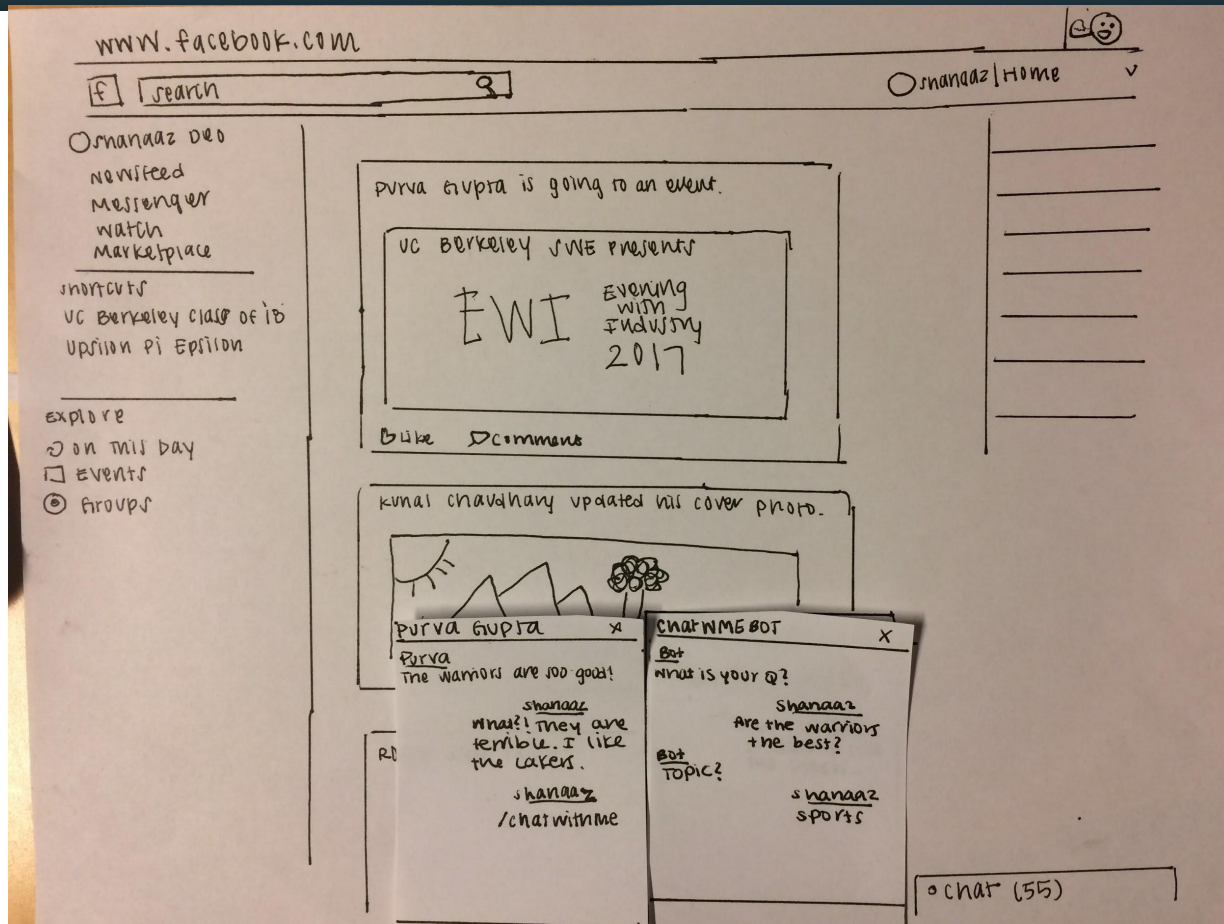 www.facebook.com
f search
shanaaz | Home
shanaaz Deo
Newsfeed
Messenger
Watch
Marketplace
shortcuts
UC Berkeley Class of 18
Upsilon Pi Epsilon
Explore
on This Day
Events
Groups
Purva Gupta is going to an event.
UC Berkeley SWE Presents
EWI
Evening
with
Industry
2017
Like comment
Kunal Chaudhary updated his cover photo.
Purva Gupta x
Purva
The warriors are soo good!
shanaaz
What?! They are
terrible. I like
the Lakers.
shanaaz
/chatwithme
ChatWMEBOT X
Bot
What is your Q?
Shanaaz
Are the warriors
the best?
Bot
Topic?
shanaaz
sports
chat (55)